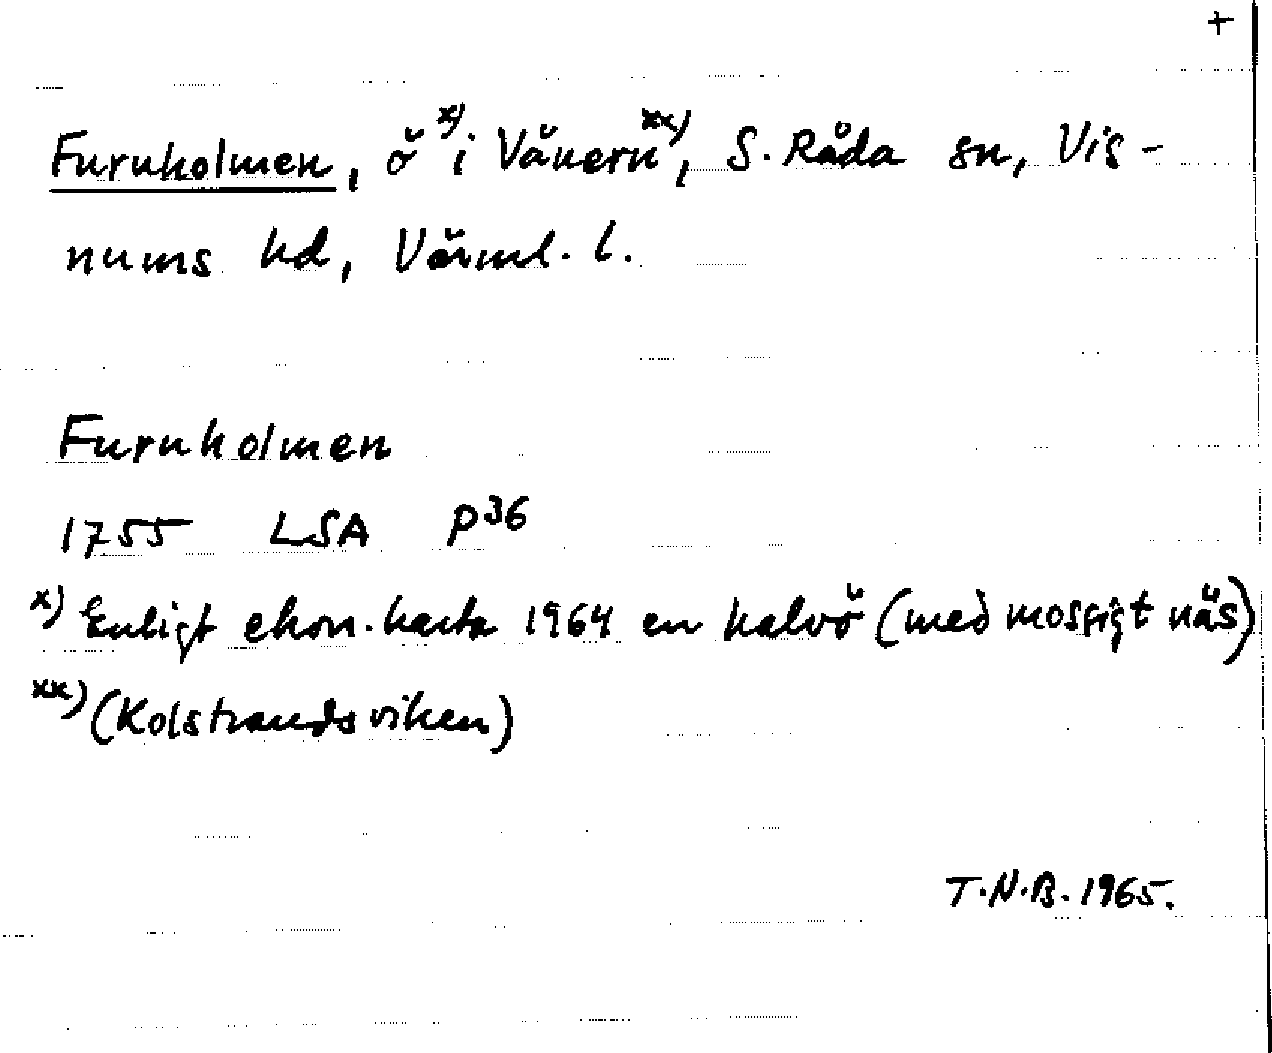 +
Furuholmen, ö x) i Vänern xx), S. Råda sn, Vis-
nums hd, Värml. l.
Furuholmen
1755 LSA P36
x) Enligt ekon. karta 1964 en halvö (med mossigt näs)
xx) (Kolstrandsviken)
T.N.B. 1965.